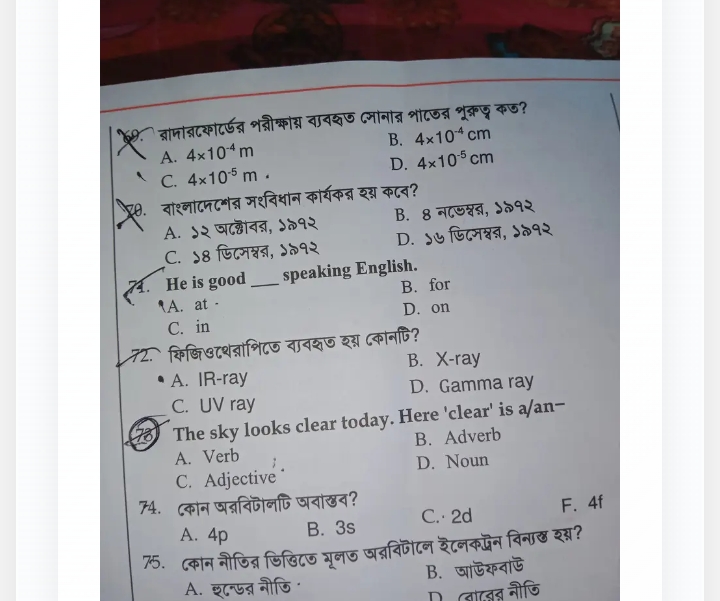 69. রাদারফোর্ডের পরীক্ষায় ব্যবহৃত সোনার পাতের পুরুত্ব কত?
A. 4×10⁻⁴ m B. 4×10⁻⁴ cm
C. 4×10⁻⁵ m D. 4×10⁻⁵ cm
70. বাংলাদেশের সংবিধান কার্যকর হয় কবে?
A. ১২ অক্টোবর, ১৯৭২ B. ৪ নভেম্বর, ১৯৭২
C. ১৪ ডিসেম্বর, ১৯৭২ D. ১৬ ডিসেম্বর, ১৯৭২
71. He is good ___ speaking English.
A. at B. for
C. in D. on
72. ফিজিওথেরাপিতে ব্যবহৃত হয় কোনটি?
A. IR-ray B. X-ray
C. UV ray D. Gamma ray
73. The sky looks clear today. Here 'clear' is a/an–
A. Verb B. Adverb
C. Adjective D. Noun
74. কোন অরবিটালটি অবাস্তব?
A. 4p B. 3s C. 2d F. 4f
75. কোন নীতির ভিত্তিতে মূলত অরবিটালে ইলেকট্রন বিন্যস্ত হয়?
A. হুন্ডের নীতি B. আউফবাউ
D. বোরের নীতি